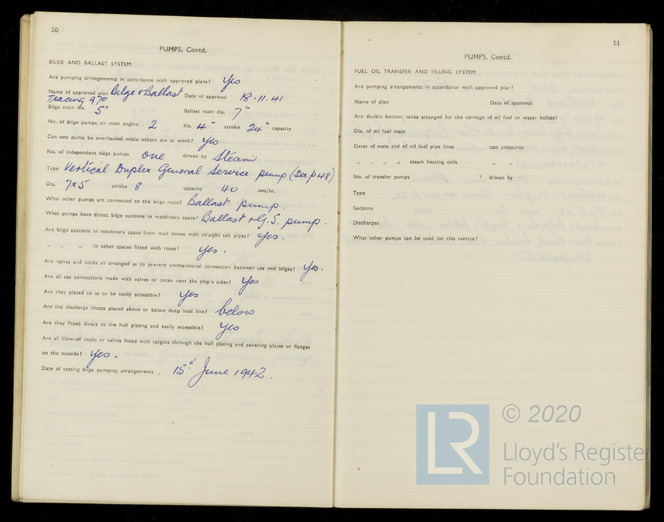 50
PUMPS, Contd.
BILGE AND BALLAST SYSTEM
Are pumping arrangements in accordance with approved plans? Yes
Name of approved plan Bilge & Ballast Date of approval 18.11.41
Tracing 970
Bilge main dia. 5" Ballast main dia. 7"
No. of bilge pumps on main engine 2 dia. 4" stroke 24" capacity
Can one pump be overhauled while others are at work? Yes
No. of independent bilge pumps one driven by Steam
Type Vertical Duplex General Service pump (See p 48)
Dia. 7x5 stroke 8 capacity 40 tons/hr.
What other pumps are connected to the bilge main? Ballast pump.
What pumps have direct bilge suctions in machinery space? Ballast & G.S. pump.
Are bilge suctions in machinery space from mud boxes with straight tail pipes? Yes.
„ „ „ in other spaces fitted with roses? Yes.
Are valves and cocks so arranged as to prevent unintentional connection between sea and bilges? Yes.
Are all sea connections made with valves or cocks next the ship's sides? Yes
Are they placed so as to be easily accessible? Yes
Are the discharge chests placed above or below deep load line? below
Are they fitted direct to the hull plating and easily accessible? Yes
Are all blow-off cocks or valves fitted with spigots through the hull plating and covering plates or flanges
on the outside? Yes.
Date of testing bilge pumping arrangements . 15th June 1942.
51
PUMPS, Contd.
FUEL OIL TRANSFER AND FILLING SYSTEM
Are pumping arrangements in accordance with approved plan?
Name of plan Date of approval
Are double bottom tanks arranged for the carriage of oil fuel or water ballast?
Dia. of oil fuel main
Dates of tests end of oil fuel pipe lines test pressures
„ „ „ „ steam heating coils „ „
No. of transfer pumps driven by
Type
Suctions
Discharges
What other pumps can be used for this service?
LR
© 2020
Lloyd's Register
Foundation